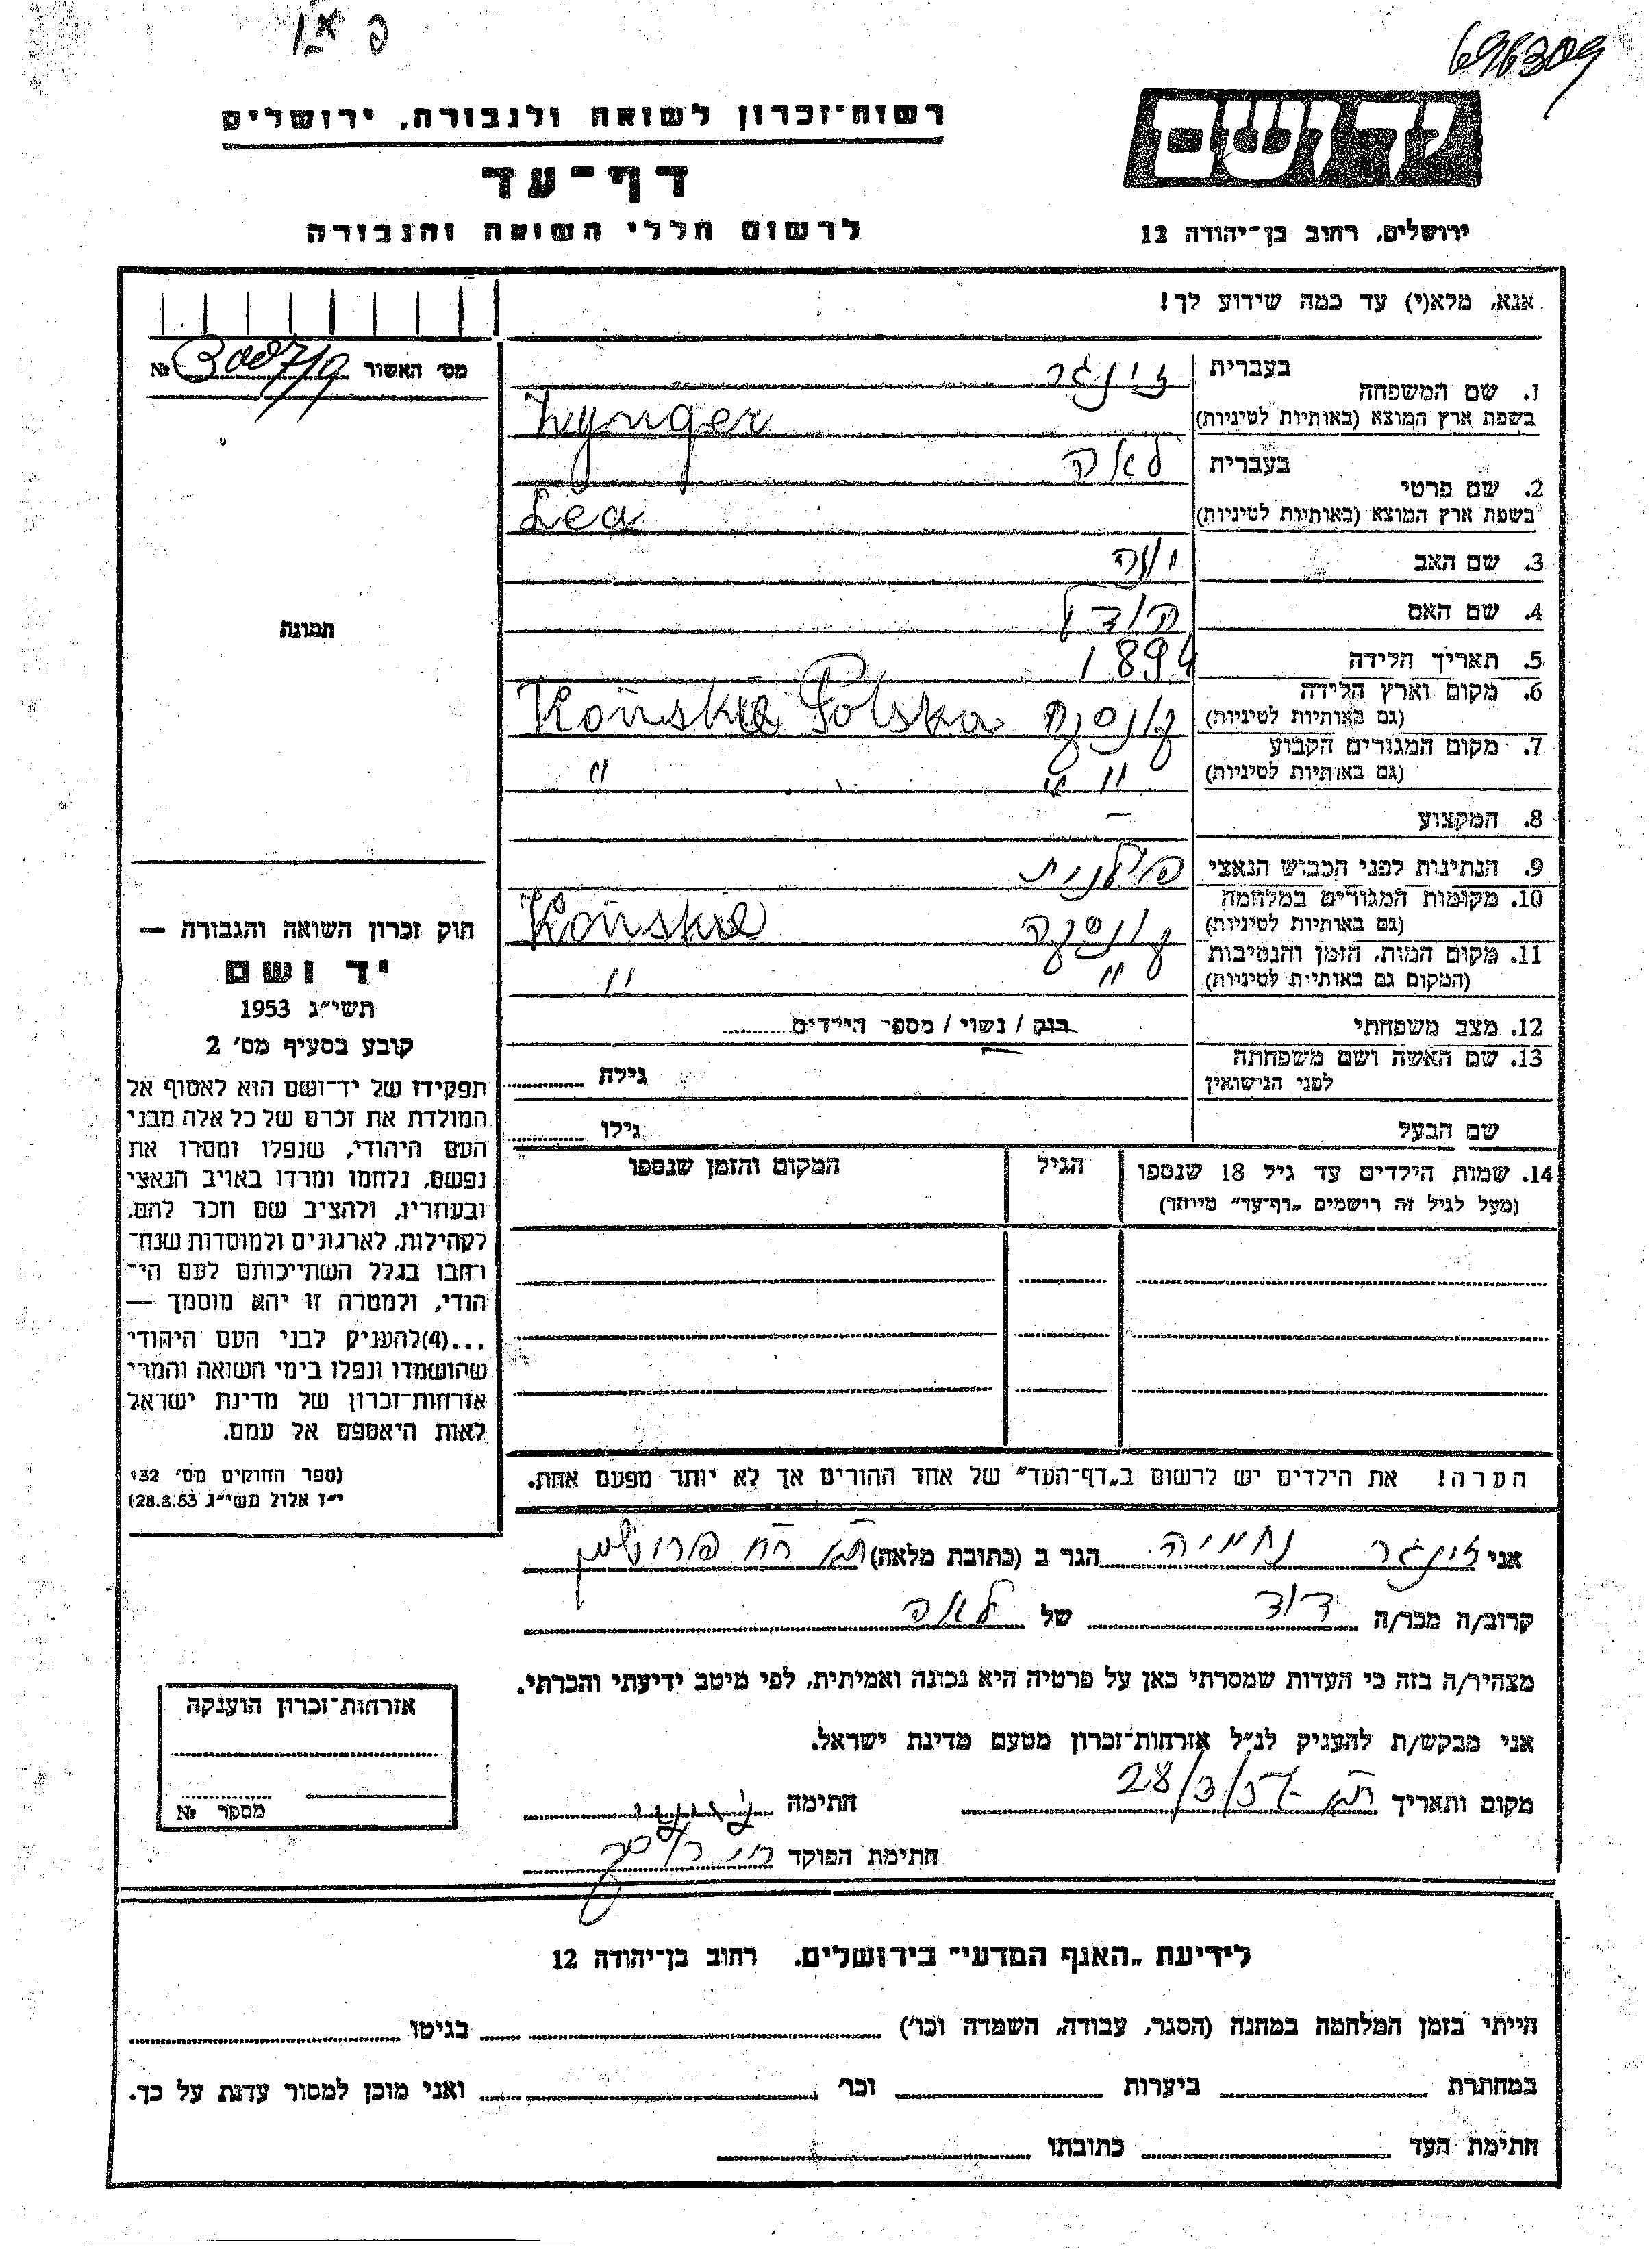 696309
רשות-זכרון לשואה ולגבורה, ירושלים
דף-עד
לרשום חללי השואה והגבורה
יד ושם
ירושלים, רחוב בן-יהודה 12
אנא, מלא(י) עד כמה שידוע לך!
מס' האשור № 3007/9
1. שם המשפחה
בעברית זינגר
בשפת ארץ המוצא (באותיות לטיניות) Zynger
2. שם פרטי
בעברית לאה
בשפת ארץ המוצא (באותיות לטיניות) Lea
3. שם האב יונה
4. שם האם הודל
5. תאריך הלידה 1894
6. מקום וארץ הלידה
(גם באותיות לטיניות) Końskie Polska
7. מקום המגורים הקבוע
(גם באותיות לטיניות) " " "
8. המקצוע –
9. הנתינות לפני הכבוש הנאצי פולנית
10. מקומות המגורים במלחמה
(גם באותיות לטיניות) Końskie
11. מקום המות, הזמן והנסיבות
(המקום גם באותיות לטיניות) " "
12. מצב משפחתי רווק / נשוי / מספר הילדים
13. שם האשה ושם משפחתה
לפני הנישואין גילה
שם הבעל גילו
14. שמות הילדים עד גיל 18 שנספו הגיל המקום והזמן שנספו
(מעל לגיל זה רישמים „דף-עד" מיוחד)
הערה! את הילדים יש לרשום ב„דף-העד" של אחד ההורים אך לא יותר מפעם אחת.
תמונה
חוק זכרון השואה והגבורה —
יד ושם
תשי"ג 1953
קובע בסעיף מס' 2
תפקידו של יד-ושם הוא לאסוף אל
המולדת את זכרם של כל אלה מבני
העם היהודי, שנפלו ומסרו את
נפשם, נלחמו ומרדו באויב הנאצי
ובעוזריו, ולהציב שם וזכר להם,
לקהילות, לארגונים ולמוסדות שנח-
רבו בגלל השתייכותם לעם הי-
הודי, ולמטרה זו יהא מוסמך —
...(4)להעניק לבני העם היהודי
שהושמדו ונפלו בימי השואה והמרי
אזרחות-זכרון של מדינת ישראל
לאות היאספם אל עמם.
(ספר החוקים מס' 132
י"ז אלול תשי"ג 28.8.53)
אני זינגר נחמיה הגר ב (כתובת מלאה) ת"א רח'
קרוב/ה מכר/ה דוד של לאה
מצהיר/ה בזה כי העדות שמסרתי כאן על פרטיה היא נכונה ואמיתית, לפי מיטב ידיעתי והכרתי.
אני מבקש/ת להעניק לנ"ל אזרחות-זכרון מטעם מדינת ישראל.
מקום ותאריך ת"א 28/3/57 חתימה
חתימת הפוקד
אזרחות-זכרון הוענקה
מספר №
לידיעת „האגף המדעי" בירושלים, רחוב בן-יהודה 12
הייתי בזמן המלחמה במחנה (הסגר, עבודה, השמדה וכו') בגיטו
במחתרת ביערות וכו' ואני מוכן למסור עדות על כך.
חתימת העד כתובתו